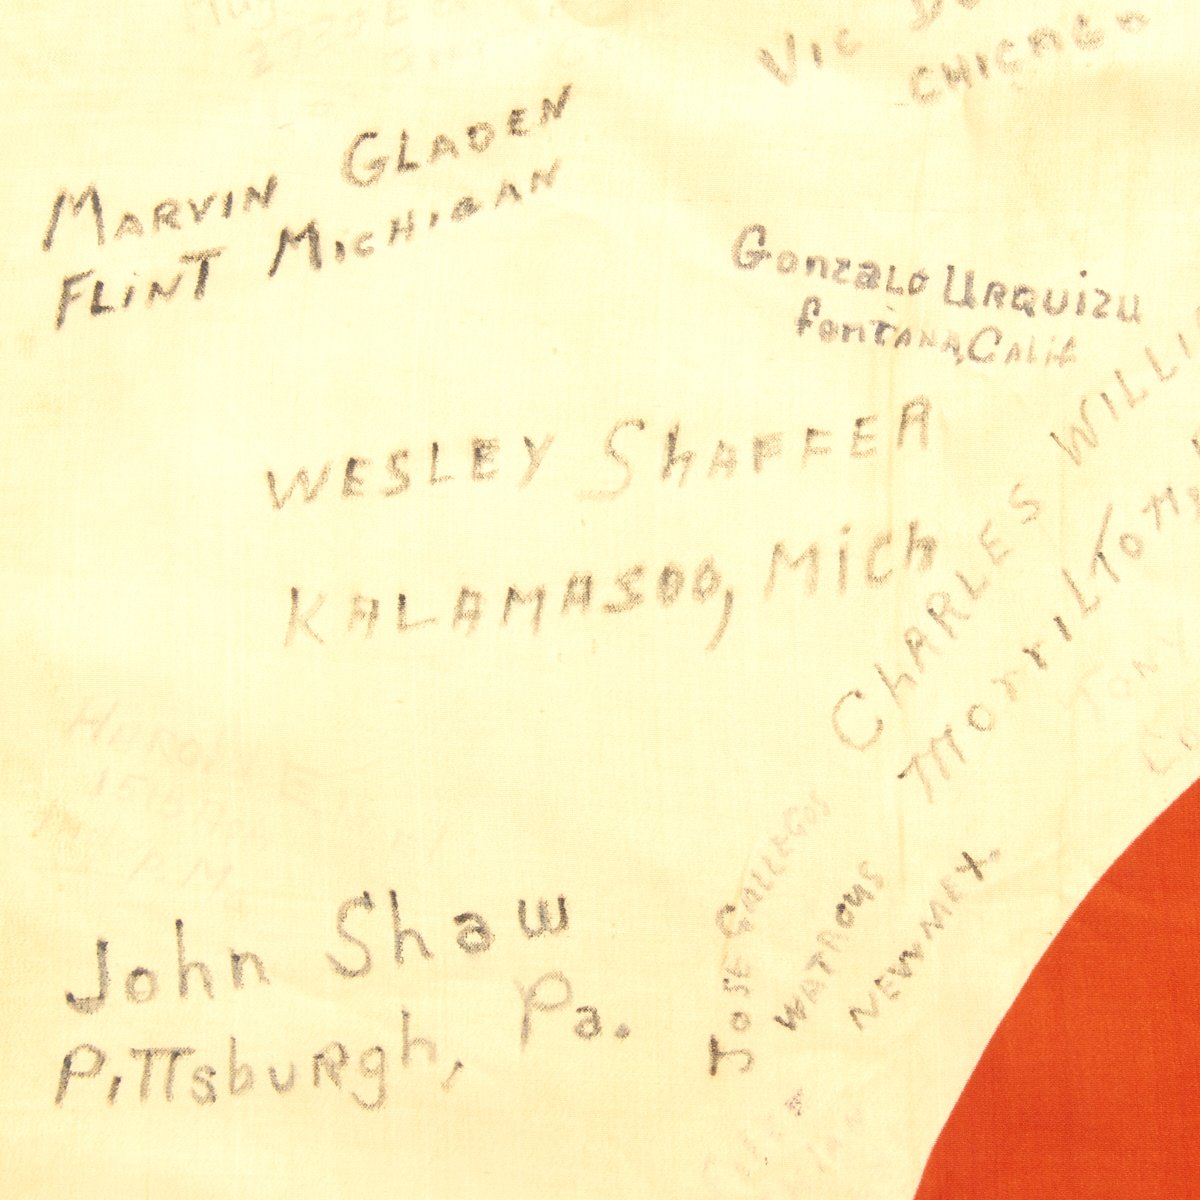 VIC
CHICAGO
MARVIN GLADEN
FLINT MICHIGAN
Gonzalo URQUIZU
fonTANA, CALif
WESLEY ShAFFER
KALAMASOO, MiCh
ChARLES WILLI
MorrilTon
TONY
HAROLD E
John Shaw
PiTTsbuRgh, Pa.
JOSE GALLEGOS
WATROUS
NEW MEX.